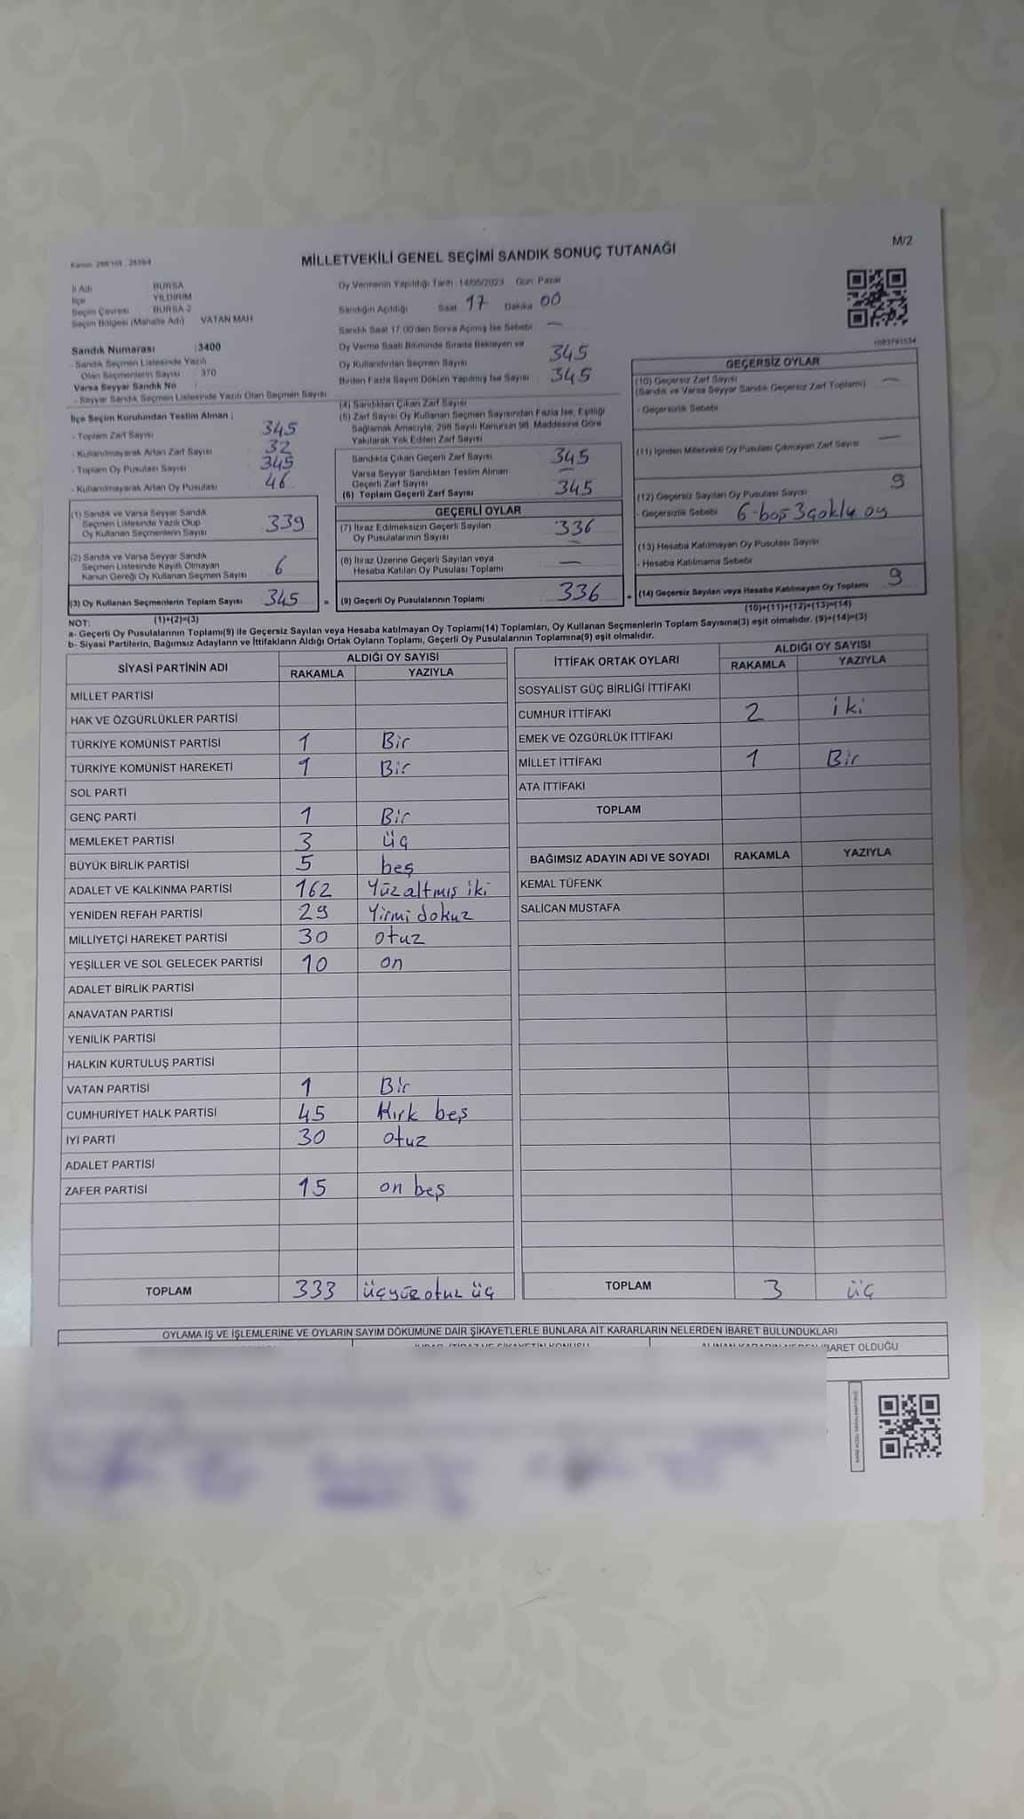 M/2
MİLLETVEKİLİ GENEL SEÇİMİ SANDIK SONUÇ TUTANAĞI
İl Adı BURSA
İlçe YILDIRIM
Seçim Çevresi BURSA 2
Seçim Bölgesi (Mahalle Adı) VATAN MAH
Sandık Numarası 3400
- Sandık Seçmen Listesinde Yazılı
Olan Seçmenlerin Sayısı 370
Varsa Seyyar Sandık No
- Seyyar Sandık Seçmen Listesinde Yazılı Olan Seçmen Sayısı
İlçe Seçim Kurulundan Teslim Alınan ;
- Toplam Zarf Sayısı 345
- Kullanılmayarak Artan Zarf Sayısı 32
- Toplam Oy Pusulası Sayısı 345
- Kullanılmayarak Artan Oy Pusulası 46
(1) Sandık ve Varsa Seyyar Sandık
Seçmen Listesinde Yazılı Olup
Oy Kullanan Seçmenlerin Sayısı 339
(2) Sandık ve Varsa Seyyar Sandık
Seçmen Listesinde Kayıtlı Olmayan
Kanun Gereği Oy Kullanan Seçmen Sayısı 6
(3) Oy Kullanan Seçmenlerin Toplam Sayısı 345
(1)+(2)=(3)
Oy Vermenin Yapıldığı Tarih 14/05/2023 Gün Pazar
Sandığın Açıldığı Saat 17 Dakika 00
Sandık Saat 17:00'den Sonra Açılmış İse Sebebi —
Oy Verme Saati Bitiminde Sırada Bekleyen ve
Oy Kullandırılan Seçmen Sayısı 345
Birden Fazla Sayım Döküm Yapılmış İse Sayısı 345
(4) Sandıktan Çıkan Zarf Sayısı
(5) Zarf Sayısı Oy Kullanan Seçmen Sayısından Fazla İse, Eşitliği
Sağlamak Amacıyla, 298 Sayılı Kanunun 98. Maddesine Göre
Yakılarak Yok Edilen Zarf Sayısı
Sandıkta Çıkan Geçerli Zarf Sayısı 345
Varsa Seyyar Sandıktan Teslim Alınan
Geçerli Zarf Sayısı —
(6) Toplam Geçerli Zarf Sayısı 345
GEÇERLİ OYLAR
(7) İtiraz Edilmeksizin Geçerli Sayılan
Oy Pusulalarının Sayısı 336
(8) İtiraz Üzerine Geçerli Sayılan veya
Hesaba Katılan Oy Pusulası Toplamı —
= (9) Geçerli Oy Pusulalarının Toplamı 336
GEÇERSİZ OYLAR
(10) Geçersiz Zarf Sayısı —
(Sandık ve Varsa Seyyar Sandık Geçersiz Zarf Toplamı)
- Geçersizlik Sebebi
(11) İçinden Milletvekili Oy Pusulası Çıkmayan Zarf Sayısı —
(12) Geçersiz Sayılan Oy Pusulası Sayısı 9
- Geçersizlik Sebebi 6-boş 3çoklu oy
(13) Hesaba Katılmayan Oy Pusulası Sayısı
- Hesaba Katılmama Sebebi
+ (14) Geçersiz Sayılan veya Hesaba Katılmayan Oy Toplamı 9
(10)+(11)+(12)+(13)=(14)
NOT:
a- Geçerli Oy Pusulalarının Toplamı(9) ile Geçersiz Sayılan veya Hesaba katılmayan Oy Toplamı(14) Toplamları, Oy Kullanan Seçmenlerin Toplam Sayısına(3) eşit olmalıdır. (9)+(14)=(3)
b- Siyasi Partilerin, Bağımsız Adayların ve İttifakların Aldığı Ortak Oyların Toplamı, Geçerli Oy Pusulalarının Toplamına(9) eşit olmalıdır.
SİYASİ PARTİNİN ADI ALDIĞI OY SAYISI
RAKAMLA YAZIYLA
MİLLET PARTİSİ
HAK VE ÖZGÜRLÜKLER PARTİSİ
TÜRKİYE KOMÜNİST PARTİSİ 1 Bir
TÜRKİYE KOMÜNİST HAREKETİ 1 Bir
SOL PARTİ
GENÇ PARTİ 1 Bir
MEMLEKET PARTİSİ 3 üç
BÜYÜK BİRLİK PARTİSİ 5 beş
ADALET VE KALKINMA PARTİSİ 162 Yüz altmış iki
YENİDEN REFAH PARTİSİ 29 Yirmi dokuz
MİLLİYETÇİ HAREKET PARTİSİ 30 otuz
YEŞİLLER VE SOL GELECEK PARTİSİ 10 on
ADALET BİRLİK PARTİSİ
ANAVATAN PARTİSİ
YENİLİK PARTİSİ
HALKIN KURTULUŞ PARTİSİ
VATAN PARTİSİ 1 Bir
CUMHURİYET HALK PARTİSİ 45 Kırk beş
İYİ PARTİ 30 otuz
ADALET PARTİSİ
ZAFER PARTİSİ 15 on beş
TOPLAM 333 üçyüz otuz üç
İTTİFAK ORTAK OYLARI ALDIĞI OY SAYISI
RAKAMLA YAZIYLA
SOSYALİST GÜÇ BİRLİĞİ İTTİFAKI
CUMHUR İTTİFAKI 2 iki
EMEK VE ÖZGÜRLÜK İTTİFAKI
MİLLET İTTİFAKI 1 Bir
ATA İTTİFAKI
TOPLAM
BAĞIMSIZ ADAYIN ADI VE SOYADI RAKAMLA YAZIYLA
KEMAL TÜFENK
SALİCAN MUSTAFA
TOPLAM 3 üç
OYLAMA İŞ VE İŞLEMLERİNE VE OYLARIN SAYIM DÖKÜMÜNE DAİR ŞİKAYETLERLE BUNLARA AİT KARARLARIN NELERDEN İBARET BULUNDUKLARI
İBARET OLDUĞU